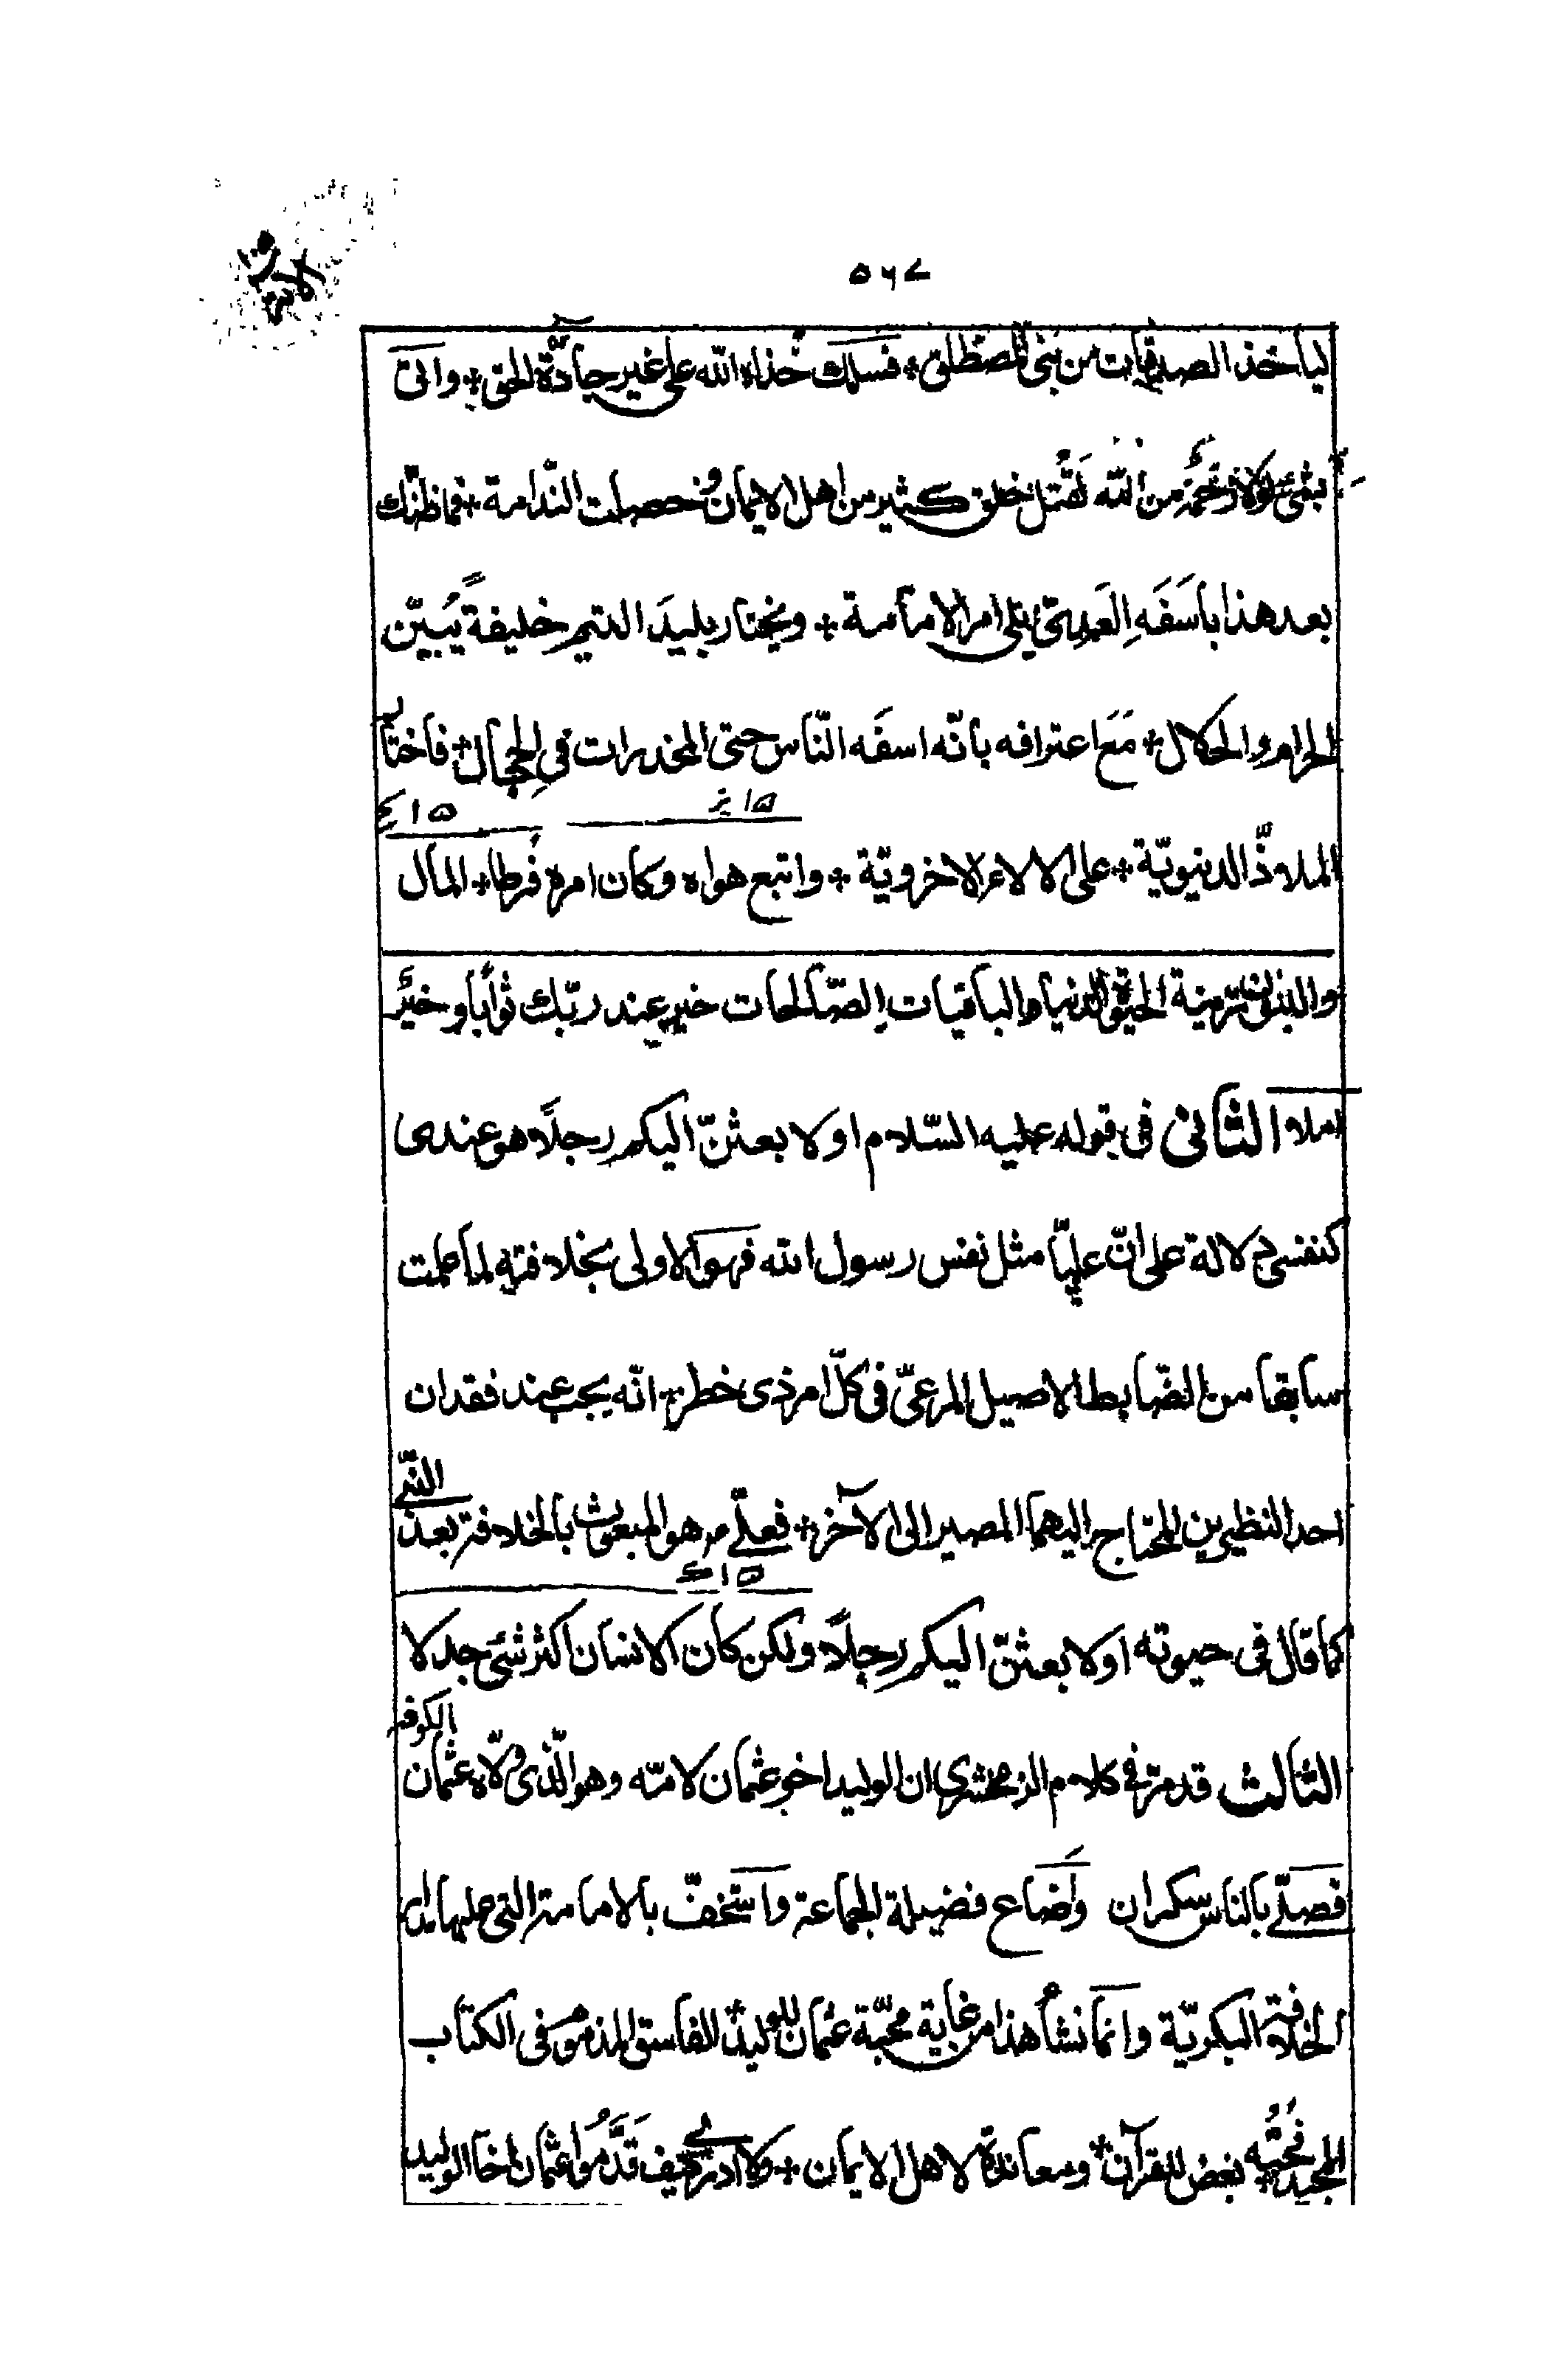 ٥٦٧
ليأخذ الصدقات من بنى المصطلق فسلك خذله الله على غير جادّة الحق واتى
بشئ لولا رحمة من الله لقتل خلق كثير من اهل الايمان وحصلت الندامة فما ظنّك
بعد هذا باسفه العدىّ يلى امر الامامة ويختار بليد التيم خليفةً يبيّن
الحرام والحلال مع اعترافه بانّه اسفه النّاس حتى المخدرات في الحجال فاختار
١٥
١٥
الملاذّ الدنيويّة على الالاء الاخرويّة واتبع هواه وكان امره فرطا المال
والبنون زينة الحيوة الدنيا والباقيات الصّالحات خير عند ربّك ثوابا وخير
املا الثانى فى قوله عليه السّلام او لابعثنّ اليكم رجلًا هو عندى
كنفسى دلالة على انّ عليّا مثل نفس رسول الله فهو الاولى بخلافته لما علمت
سابقا من الضّابط الاصيل المرعىّ فى كلّ امر ذى خطر انّه يجب عند فقدان
احد النظيرين المحتاج اليهما المصير الى الآخر فعلّى هو المبعوث بالخلافة بعد النّبى
١٥
كما قال فى حيوته او لابعثنّ اليكم رجلًا ولكن كان الانسان اكثر شئ جدلا
الثالث قد مرّ في كلام الزمخشرى ان الوليد اخو عثمان لامّه وهو الّذى ولّاه عثمان الكوفة
فصلّى بالناس سكران واضاع فضيلة الجماعة واستخفّ بالامامة التى عليها مدار
الخلافة البكريّة وانما نشأ هذا من غاية محبّة عثمان للوليد الفاسق المذموم فى الكتاب
المجيد فحبّه بغض للقرآن ومعاندة لاهل الايمان ولا ادرى كيف قدّموا عثمان اخا الوليد